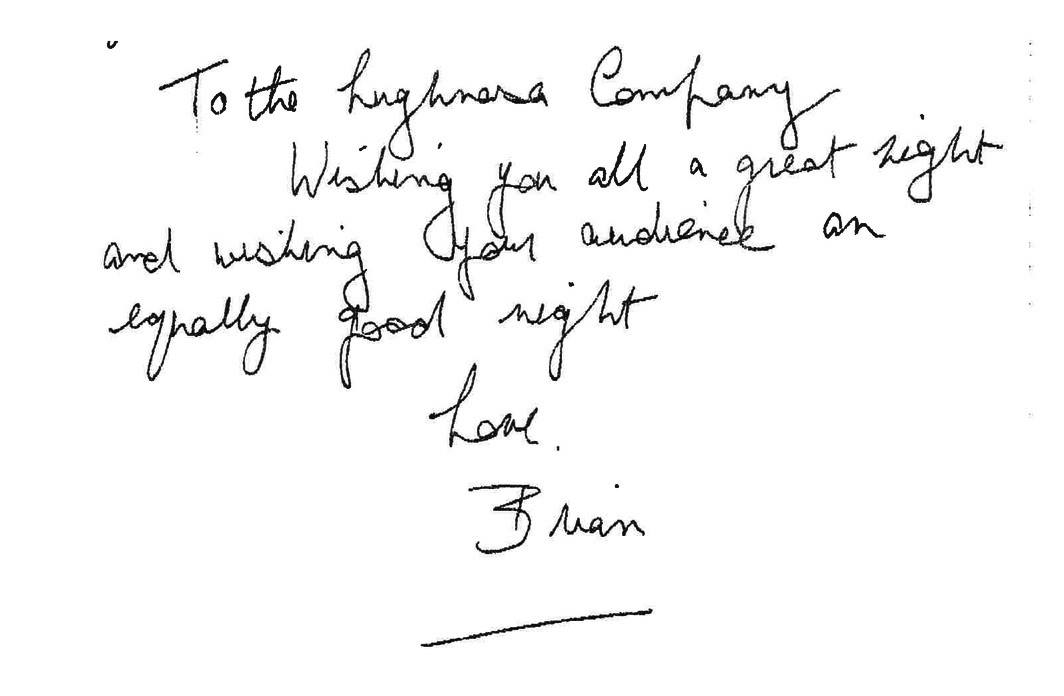 To the Lughnasa Company
Wishing you all a great night
and wishing your audience an
equally good night
Love.
Brian